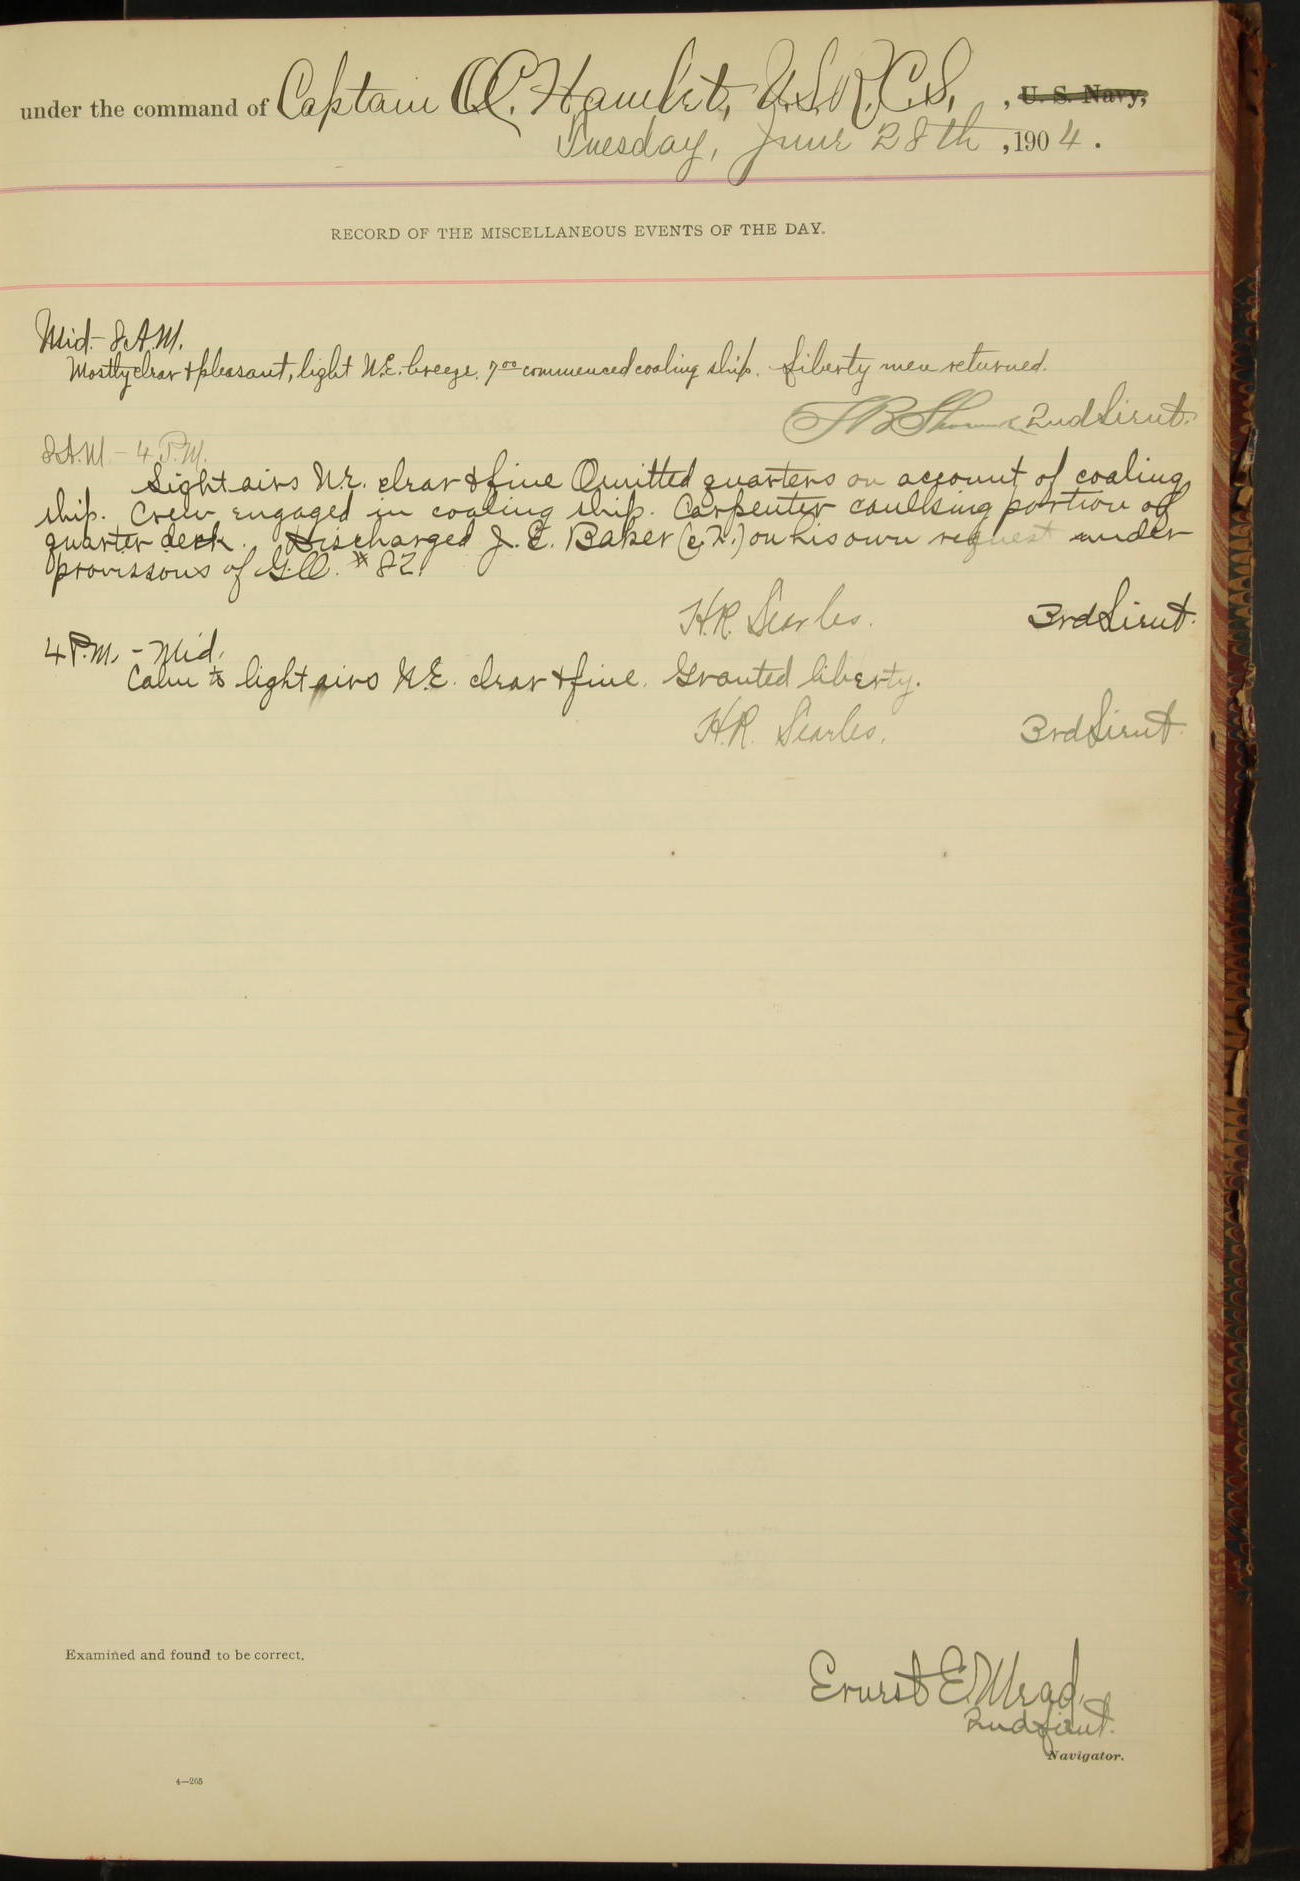 under the command of Captain O.C. Hamlet, U.S.R.C.S., , U. S. Navy,
Tuesday, June 28th , 1904.
RECORD OF THE MISCELLANEOUS EVENTS OF THE DAY.
Mid.- 8 A.M.
Mostly clear & pleasant, light N.E. breeze. 7⁰⁰ commenced coaling ship. Liberty men returned.
2nd Lieut.
8 A.M. - 4 P.M.
Light airs N.E. clear & fine Omitted quarters on account of coaling
ship. Crew engaged in coaling ship. Carpenter caulking portion of
quarter deck. Discharged J. E. Baker on his own request under
provissons of G.O. # 82.
H.R. Searles. 3rd Lieut.
4 P.M. - Mid.
Calm to light airs N.E. clear & fine. Granted liberty.
H.R. Searles. 3rd Lieut.
Examined and found to be correct.
Ernest E. Mead,
2nd Lieut.
Navigator.
4—205